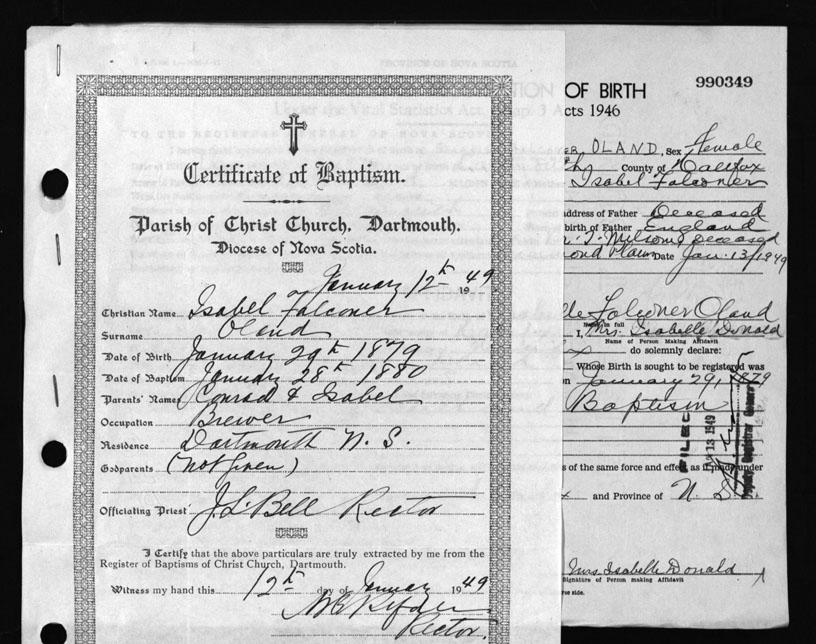 Certificate of Baptism.
Parish of Christ Church, Dartmouth.
Diocese of Nova Scotia.
January 12th 1949
Christian Name Isabel Falconer
Surname Oland
Date of Birth January 29th 1879
Date of Baptism January 28th 1880
Parents' Names Conrad & Isabel
Occupation Brewer
Residence Dartmouth N. S.
Godparents (not given)
Officiating Priest J. L. Bell Rector
I Certify that the above particulars are truly extracted by me from the
Register of Baptisms of Christ Church, Dartmouth.
Witness my hand this 12th day of January 1949
Rector.
OF BIRTH 990349
Acts 1946
OLAND, Sex Female
County of Halifax
Isabel Falconer
address of Father Deceased
birth of Father England
deceased
Date Jan. 13/1949
Falconer Oland
in full
I, Mrs. Isabelle Donald
Name of Person Making Affidavit
do solemnly declare:
Whose Birth is sought to be registered was
on January 29, 1879
Baptism
FILED
13 1949
Deputy Registrar General
of the same force and effect as if made under
and Province of N. S.
Mrs Isabelle Donald
Signature of Person making Affidavit
side.